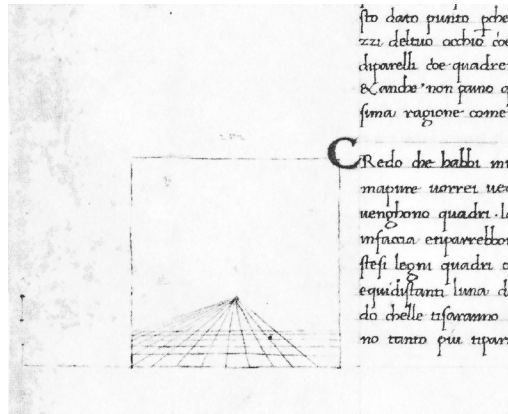 sto dato punto pche
zzi deltuo occhio coe
diparelli coe quadre
& anche non pano q
sima ragione come
CRedo che habbi mi
mapure uorrei ue
uenghono quadri la
infaccia etiparrebbon
stesi legni quadri
equidistanti luna d
do chelle tisaranno
no tanto piu tipar